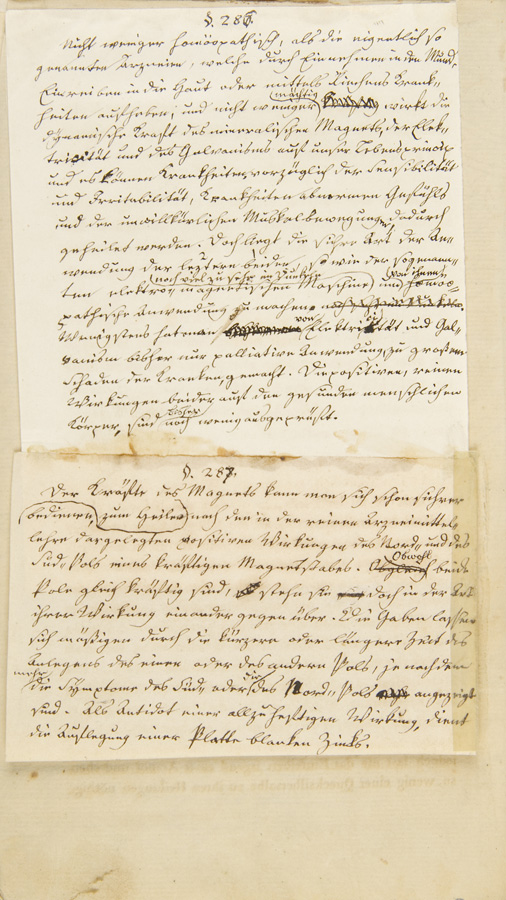 §. 286.
Nicht weniger homöopathisch, als die eigentlich so
genannten Arzneien, welche durch Einnehmen in den Mund,
Einreiben in die Haut oder mittels Riechens Krank-
heiten aufheben, und nicht weniger mächtig wirkt die
dynamische Kraft des mineralischen Magnets, der Elek-
tricität und des Galvanisms auf unser Lebensprincip
und es können Krankheiten vorzüglich der Sensibilität
und Irritabilität, Krankheiten abnormen Gefühls
und der unwillkürlichen Muskelbewegungen dadurch
geheilet werden. Doch liegt die sichre Art der An-
wendung der letztern beiden, so wie der sogenann-
ten elektro-magnetischen Maschine, noch viel zu sehr im Dunkeln um von ihnen homöo-
pathische Anwendung zu machen.
Wenigstens hat man von Elektricität und Gal-
vanism bisher nur palliative Anwendung zu großem
Schaden der Kranken gemacht. Die positiven, reinen
Wirkungen beider auf den gesunden menschlichen
Körper, sind bisher noch wenig ausgeprüft.
§. 287.
Der Kräfte des Magnets kann man sich schon sichrer
bedienen, zum Heilen nach den in der reinen Arzneimittel-
lehre dargelegten positiven Wirkungen des Nord- und des
Süd-Pols eines kräftigen Magnetstabes. Obwohl beide
Pole gleich kräftig sind, stehn sie doch in der Art
ihrer Wirkung einander gegen über. Die Gaben lassen
sich mäßigen durch die kürzere oder längere Zeit des
Anlegens des einen oder des andern Pols, je nachdem
mehr die Symptome des Süd- oder die des Nord-Pols angezeigt
sind. Als Antidot einer allzu heftigen Wirkung, dient
die Auflegung einer Platte blanken Zinks.